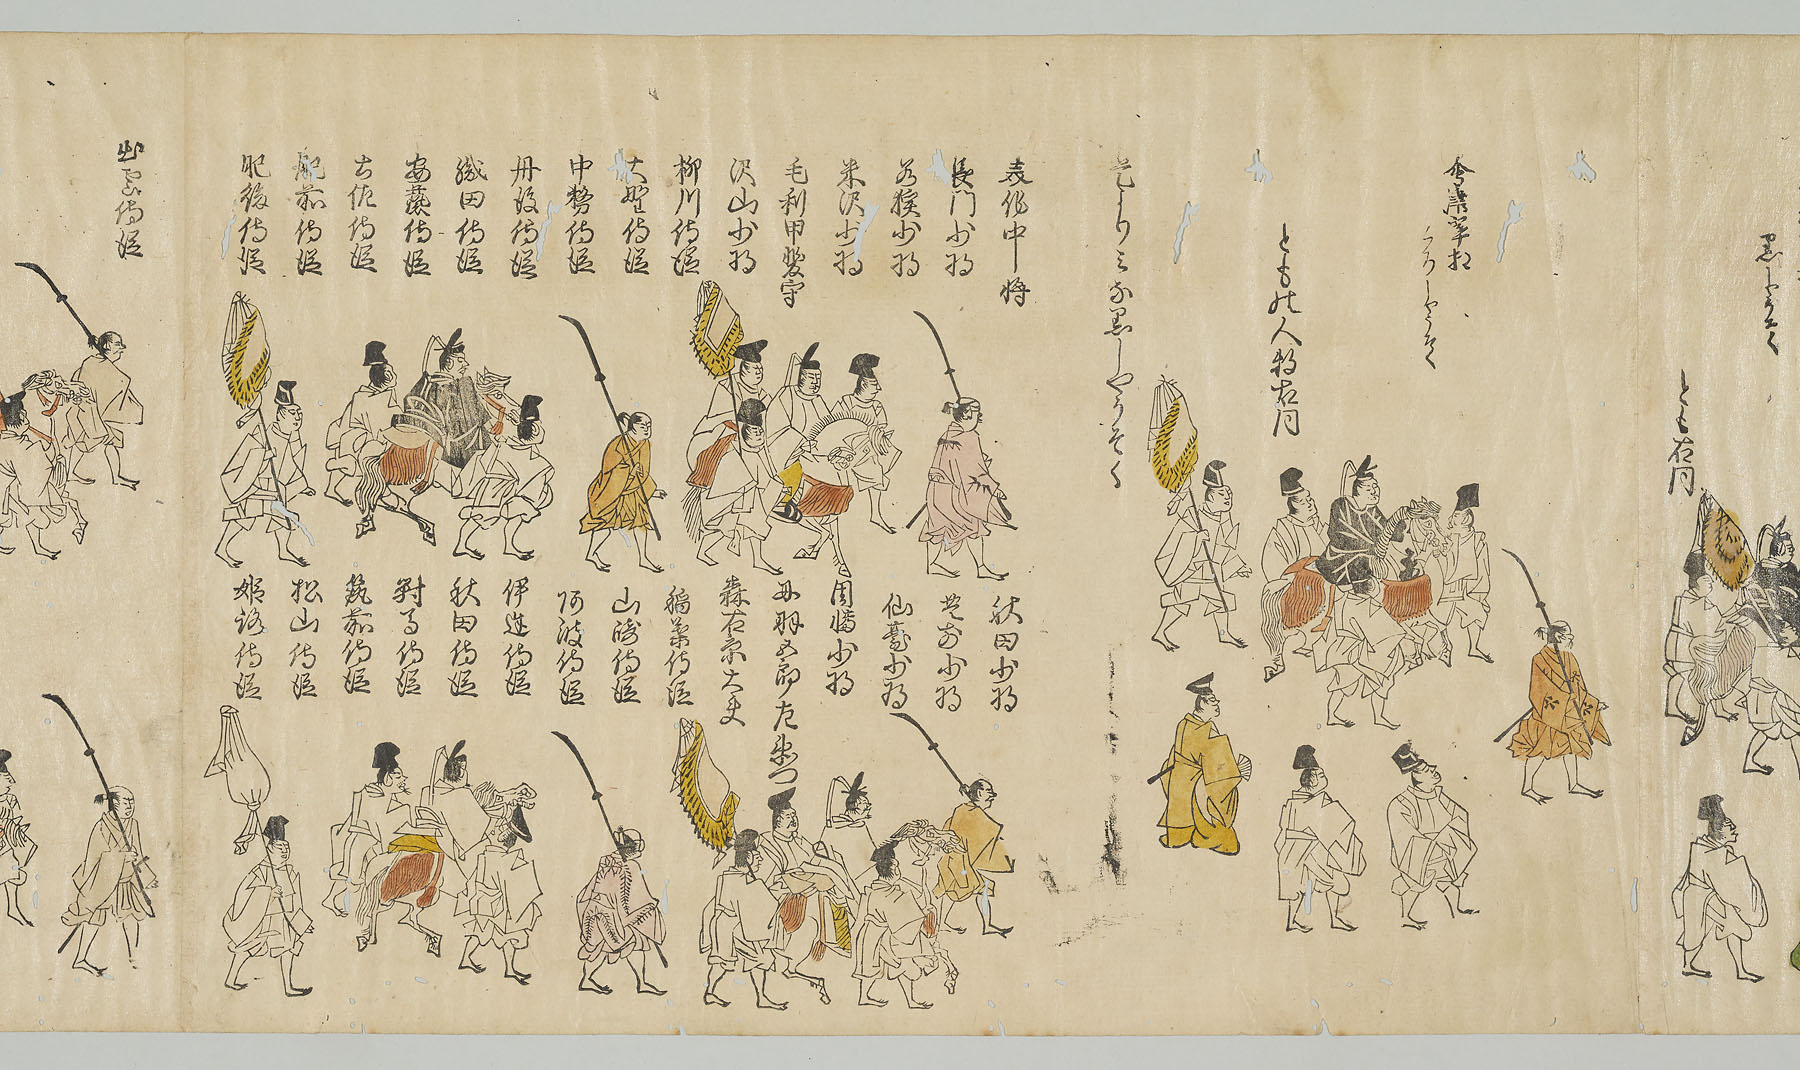 黒しやうそく
とも右同
會津宰相
くろしやうそく
とも北人数右同
是よりミな黒しやうそく
美作中将
長門少将
若狭少将
米沢少将
毛利甲斐守
沢山少将
柳川侍従
大野侍従
中務侍従
丹後侍従
織田侍従
安藝侍従
土佐侍従
肥前侍従
肥後侍従
秋田少将
仙臺少将
因幡少将
丹羽五郎左衛門
森右京大夫
稲葉侍従
山崎侍従
阿波侍従
伊達侍従
秋田侍従
對馬侍従
筑前侍従
松山侍従
姫路侍従
出雲侍従